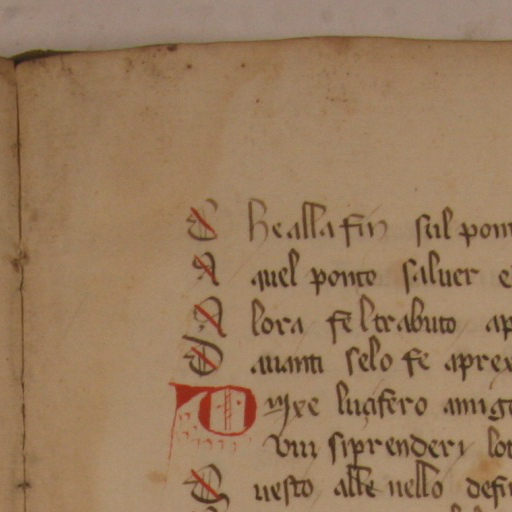 C he alla fin sul pon
A quel ponte saluer e
A lora fe l trabuto ap
D auanti selo fe aprex
D ixe luçifero amigo
Vui si prenderi lo
Q uesto alle nello defi